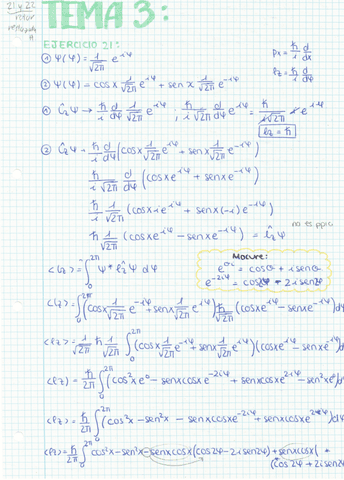 21 y 22
TEMA 3:
EJERCICIO 21:
px = ħ/i d/dx
ℓz = ħ/i d/dφ
① Ψ(φ) = 1/√2π e^iφ
② Ψ(φ) = cosx 1/√2π e^iφ + senx 1/√2π e^-iφ
① L̂zΨ → ħ/i d/dφ 1/√2π e^iφ ; ħ/i 1/√2π d/dφ e^iφ = ħ/i√2π i e^iφ
ℓz = ħ
② L̂zΨ → ħ/i d/dφ (cosx 1/√2π e^iφ + senx 1/√2π e^-iφ)
ħ/i 1/√2π d/dφ (cosx e^iφ + senx e^-iφ)
ħ/i 1/√2π (cosx i e^iφ + senx (-i) e^-iφ)
no es ppio
ħ 1/√2π (cosx e^iφ - senx e^-iφ) = L̂zΨ
Macure:
e^iα = cosα + i senα
<ℓz> = ∫₀^2π Ψ* L̂zΨ dφ
<ℓz> = ∫₀^2π (cosx 1/√2π e^-iφ + senx 1/√2π e^iφ) ħ 1/√2π (cosx e^iφ - senx e^-iφ) dφ
<ℓz> = 1/√2π ħ 1/√2π ∫₀^2π (cosx e^-iφ + senx e^iφ)(cosx e^iφ - senx e^-iφ) dφ
<ℓz> = ħ/2π ∫₀^2π (cos²x e⁰ - senx cosx e^-2iφ + senx cosx e^2iφ - sen²x e⁰) dφ
<ℓz> = ħ/2π ∫₀^2π (cos²x - sen²x - senx cosx e^-2iφ + senx cosx e^2iφ) dφ
<ℓz> = ħ/2π ∫₀^2π cos²x - sen²x - senx cosx (cos2φ - 2i sen2φ) + senx cosx (
(cos2φ + 2i sen2φ